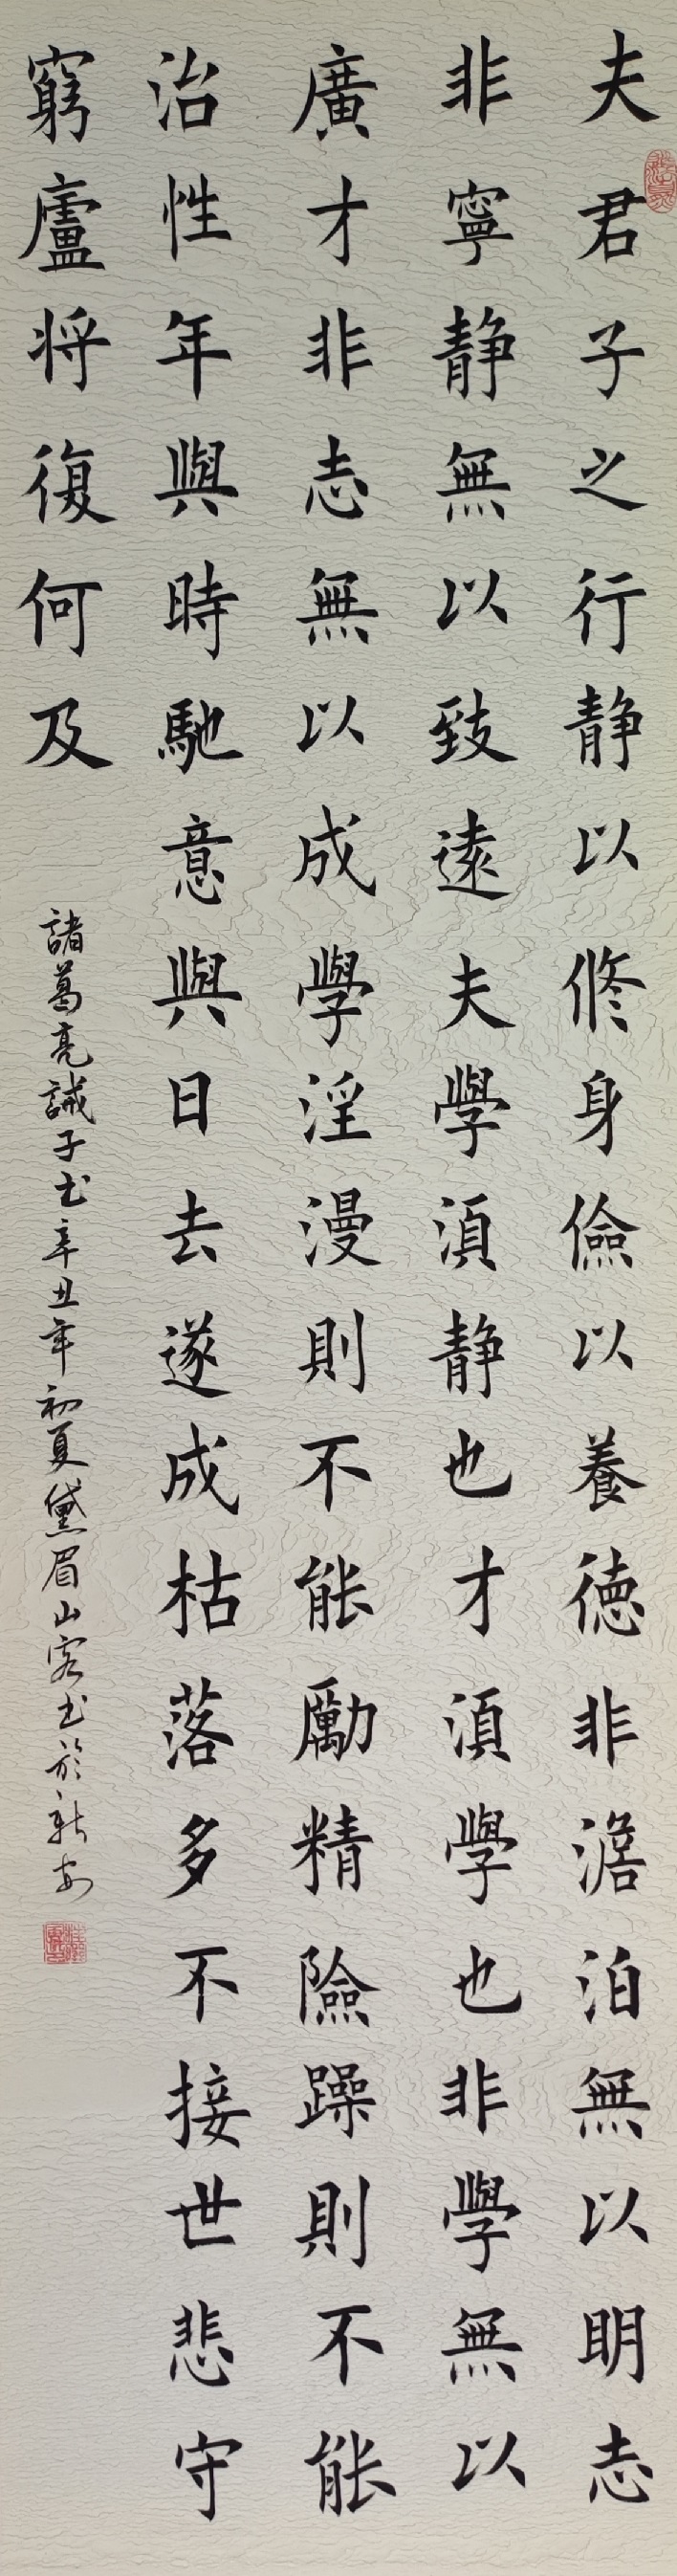 夫君子之行静以修身儉以養德非澹泊無以明志
非寧静無以致遠夫學須静也才須學也非學無以
廣才非志無以成學淫漫則不能勵精險躁則不能
治性年與時馳意與日去遂成枯落多不接世悲守
窮廬将復何及
諸葛亮誡子书辛丑年初夏黛眉山客书於新安